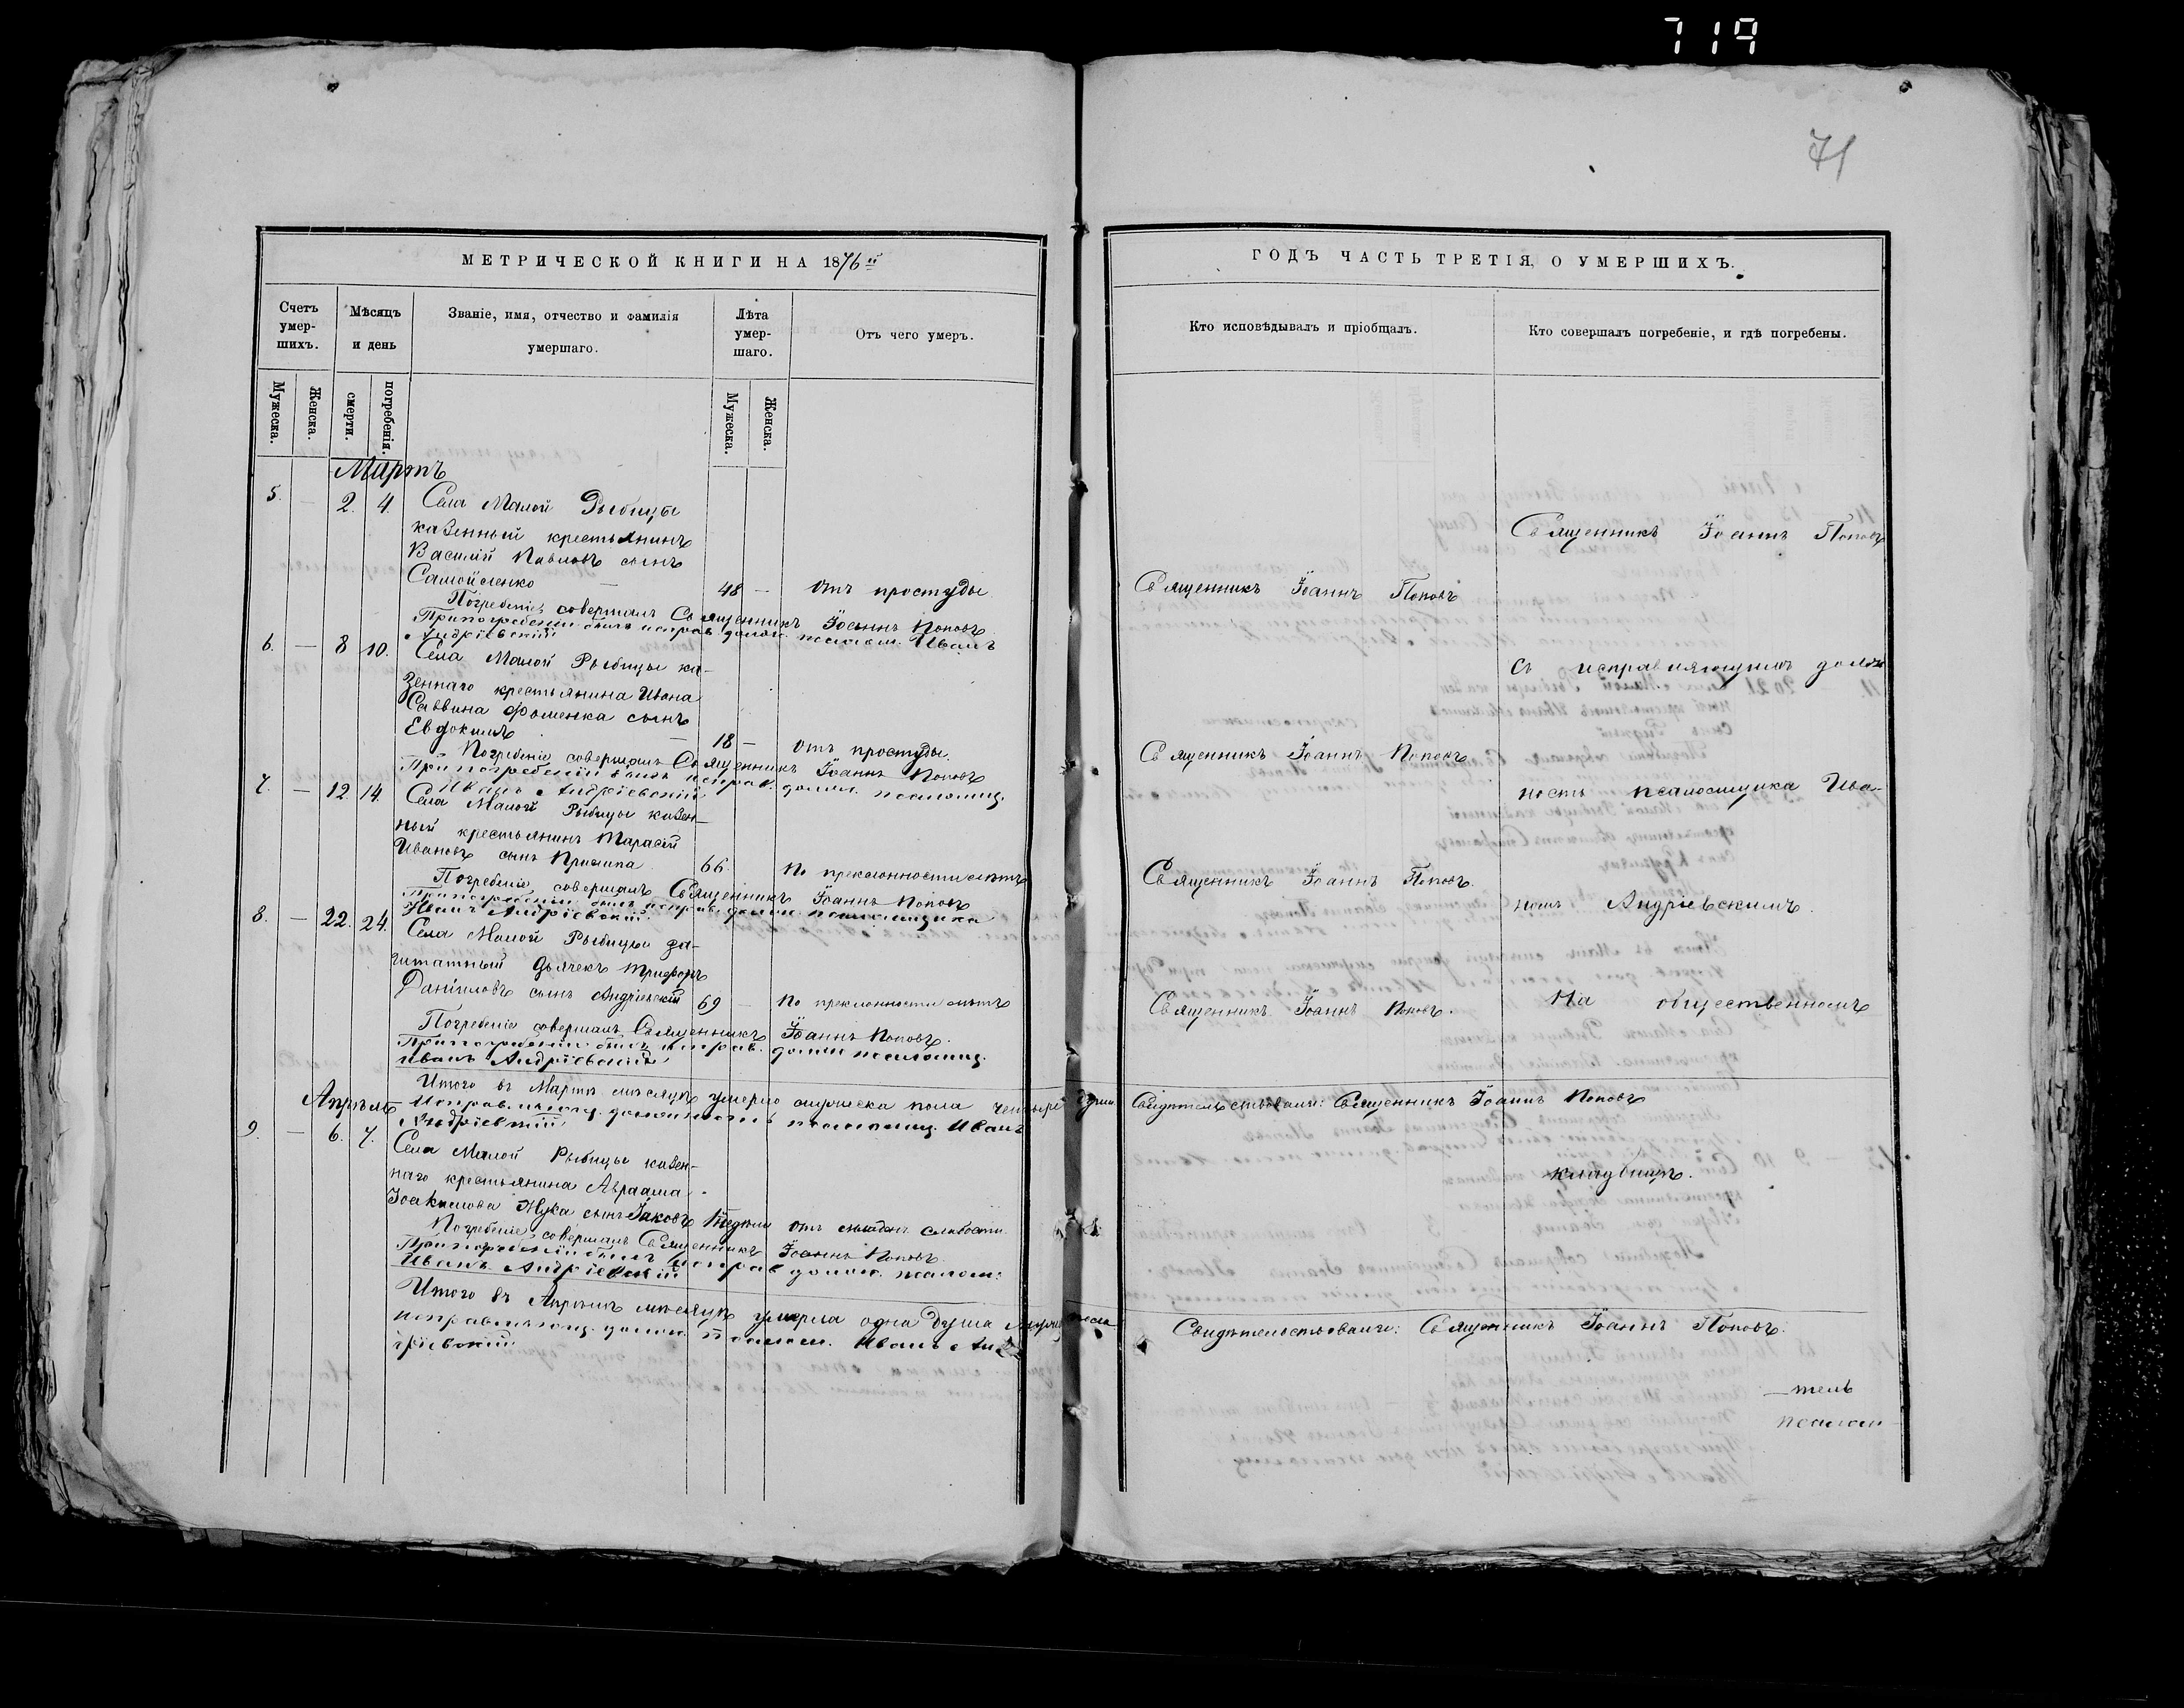 719
71
МЕТРИЧЕСКОЙ КНИГИ НА 1876 й
Счетъ умер-шихъ.
Мѣсяцъ и день
Званіе, имя, отчество и фамилія умершаго.
Лѣта умер-шаго.
Отъ чего умеръ.
Мужеска.
Женска.
смерти.
погребенія.
Мужеска.
Женска.
Мартъ
5. — 2. 4. Села Малой Рыбицы
казенный крестьянинъ
Василій Павловъ сынъ
Самойленко — 48 — отъ простуды
Погребеніе совершалъ Священникъ Іоаннъ Поповъ
При погребеніи былъ исправ. должн. псалом. Иванъ
Андріевскій
6. — 8 10. Села Малой Рыбицы ка-
зеннаго крестьянина Ивана
Саввина Фоменка сынъ
Евдокимъ — 18 — отъ простуды.
Погребеніе совершалъ Священникъ Іоаннъ Поповъ
При погребеніи былъ исправ. должн. псаломщ.
Иванъ Андріевскій
7. — 12. 14. Села Малой Рыбицы казен-
ный крестьянинъ Тарасій
Ивановъ сынъ 66. По преклонности лѣтъ
Погребеніе совершалъ Священникъ Іоаннъ Поповъ
При погребеніи былъ исправ. должн. псаломщика
Иванъ Андріевскій
8. — 22. 24. Села Малой Рыбицы за-
штатный дьячекъ Трифонъ
Даніиловъ сынъ Андріевскій 69 — по преклонности лѣтъ
Погребеніе совершалъ Священникъ Іоаннъ Поповъ.
При погребеніи былъ исправ. должн псаломщ.
Иванъ Андріевскій
Итого въ Мартѣ мѣсяцѣ умерло мужеска пола четыре души
Исправляющ. должность псаломщ. Иванъ
Андріевскій
Апрѣль
9. — 6. 7. Села Малой Рыбицы казен-
наго крестьянина Авраама
Іоакимова Жука сынъ Іаковъ отъ слабости
Погребеніе совершалъ Священникъ Іоаннъ Поповъ.
При погребеніи былъ исправ должн. псалом:
Иванъ Андріевскій
Итого въ Апрѣлѣ мѣсяцѣ умерла одна душа мужеска
исправляющ. должн. псалом. Иванъ Анд-
ріевскій
ГОДЪ ЧАСТЬ ТРЕТІЯ, О УМЕРШИХЪ.
Кто исповѣдывалъ и пріобщалъ.
Кто совершалъ погребеніе, и гдѣ погребены.
Священникъ Іоаннъ Поповъ
Священникъ Іоаннъ Поповъ
съ исправляющимъ долж
Священникъ Іоаннъ Поповъ
ность псаломщика Ива-
Священникъ Іоаннъ Поповъ.
номъ Андріевскимъ.
Священникъ Іоаннъ Поповъ.
На общественномъ
Свидѣтельствовали: Священникъ Іоаннъ Поповъ
кладбищѣ.
Свидѣтельствовали: Священникъ Іоаннъ Поповъ.
—тель
псалом